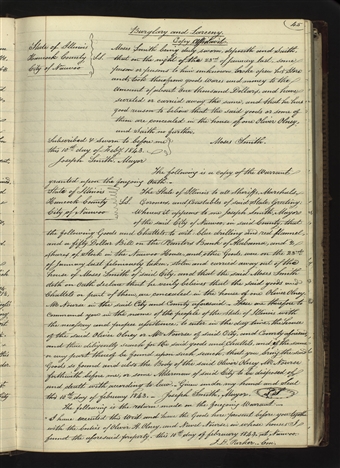 45
Burglary and Larceny.
Copy Affidavit.
State of Illinois
Hancock County
City of Nauvoo
Sct.
Moses Smith being duly sworn, deposeth and saith
that on the night of the 22nd of January last some
person or persons to him unknown broke open his Store
and took therefrom goods wares and money to the
amount of about One thousand Dollars, and have
secreted or carried away the same, and that he has
good reason to believe that the said goods or some of
them are concealed in the house of one Oliver Olney,
and saith no further
Subscribed & sworn to before me
this 10th day of Feby. 1843.
Moses Smith.
Joseph Smith, Mayor
The following is a copy of the Warrant
granted upon the forgoing Oath.
State of Illinois
Hancock County
City of Nauvoo
Sct.
The State of Illinois to all Sheriffs, Marshals,
Coroners and Constables of said State Greeting.
Whereas it appears to me Joseph Smith, Mayor
of the said City of Nauvoo in said County, that
the following Goods and Chattels to wit blue drilling and red flannel,
and a fifty Dollar Bill on the Planters Bank of Alabama, and 2
shares of Stock in the Nauvoo House, and other goods were on the 22nd
of January last feloniously taken, stolen and carried away out of the
house of Moses Smith of said City, and that the said Moses Smith
doth on Oath declare that he verily believes that the said goods and
Chattels or part of them, are concealed in the house of one Oliver Olney
in the said City and County aforesaid. These are therefore to
command you in the name of the people of the State of Illinois with
the necessary and proper assistance, to enter in the day time, the house
of the said Oliver Olney or of said City, and County aforesaid
and there diligently search for the said goods and Chattels, and if the same
or any part thereof be found upon such search, that you bring the said
Goods so found and also the Body of the said Oliver Olney
forthwith before me, or some Alderman of said City to be disposed of
and dealt with according to law. Given under my hand and seal
this 10th day of February 1843.
Joseph Smith, Mayor
The following is the return made on the forgoing Warrant.
I have executed this Writ and have the Goods here present before you together
with the bodies of Oliver H. Olney, and Newel Nurse, in whose houses I
found the aforesaid property. this 10th day of February 1843. at Nauvoo